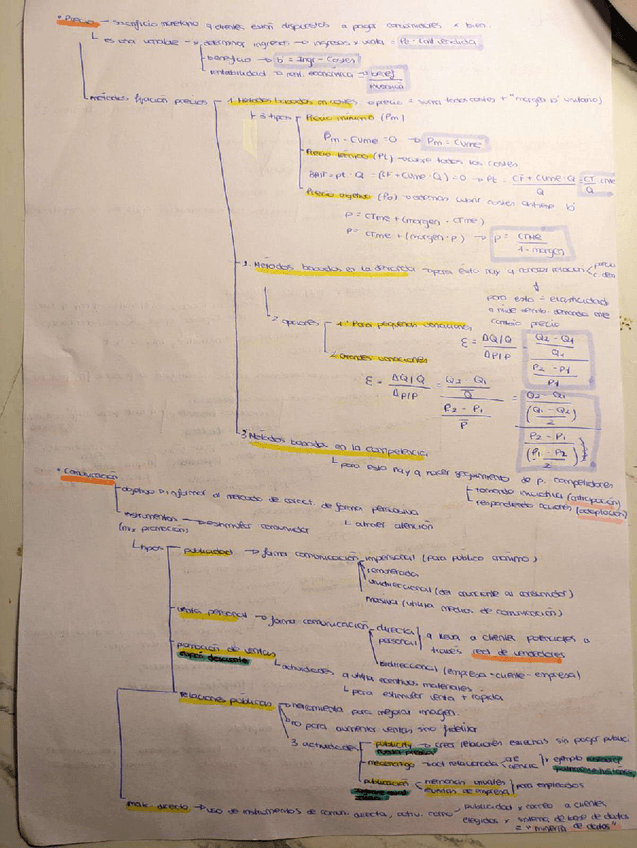 • Precio → sacrificio monetario q clientes están dispuestos a pagar consumidores x bien
es una variable → x determinar ingresos → ingresos x venta = Pt · Cant vendida
beneficio → b' = Ingr - Costes
rentabilidad → rent. económica → benef
métodos fijación precios → 1 Métodos basados en costes → precio = suma todos costes + "margen b' unitario)
3 tipos Precio mínimo (Pm)
Pm - CVme = 0 → Pm = CVme
Precio técnico (Pt) → cubre todos los costes
BAIT = pt · Q - (CF + CVme · Q) = 0 → Pt = CF + CVme · Q / Q = CT / Q CTme
Precio objetivo (Po) → además cubrir costes obtiene b'
P = CTme + (margen · CTme)
P = CTme + (margen · P) → P = CTme / 1 - margen
2 Métodos basados en la demanda → para esto hay q conocer relación precio
para esto = elasticidad
q mide demanda ante
cambio precio
2 opciones 1. Para pequeñas variaciones
ε = ΔQ/Q / ΔP/P = Q2 - Q1 / Q1 / P2 - P1 / P1
2 Grandes variaciones
ε = ΔQ/Q / ΔP/P = Q2 - Q1 / Q / P2 - P1 / P = Q2 - Q1 / (Q1 - Q2) / 2 / P2 - P1 / (P1 - P2) / 2
3 Métodos basados en la competencia
para esto hay q hacer seguimiento de p. competidores
tomando iniciativa (anticipación)
respondiendo acciones (adaptación)
• Comunicación
objetivo → informar al mercado de caract. de forma persuasiva
instrumentos → estimular consumidor
(mix promoción) atraer atención
tipos publicidad → forma comunicación impersonal (para público anónimo)
remunerada
unidireccional (del anunciante al consumidor)
masiva (utiliza medios de comunicación)
venta personal → forma comunicación directa
personal q lleva a clientes potenciales a
través red de vendedores
bidireccional (empresa - cliente - empresa)
promoción de ventas
cupón descuento actividades q utiliza incentivos materiales
para estimular ventas + rápida
relaciones públicas herramienta para mejorar imagen
no para aumentar ventas sino fidelizar
3 actividades publicity → crear relaciones externas sin pagar public.
mecenazgo → act relacionada arte ciencia ejemplo
publicación memorias anuales
revistas de empresa para empleados
mak. directo → uso de instrumentos de comuni. directa, activ. como publicidad x correo a clientes
elegidos x sistema de base de datos
= "minería de datos"